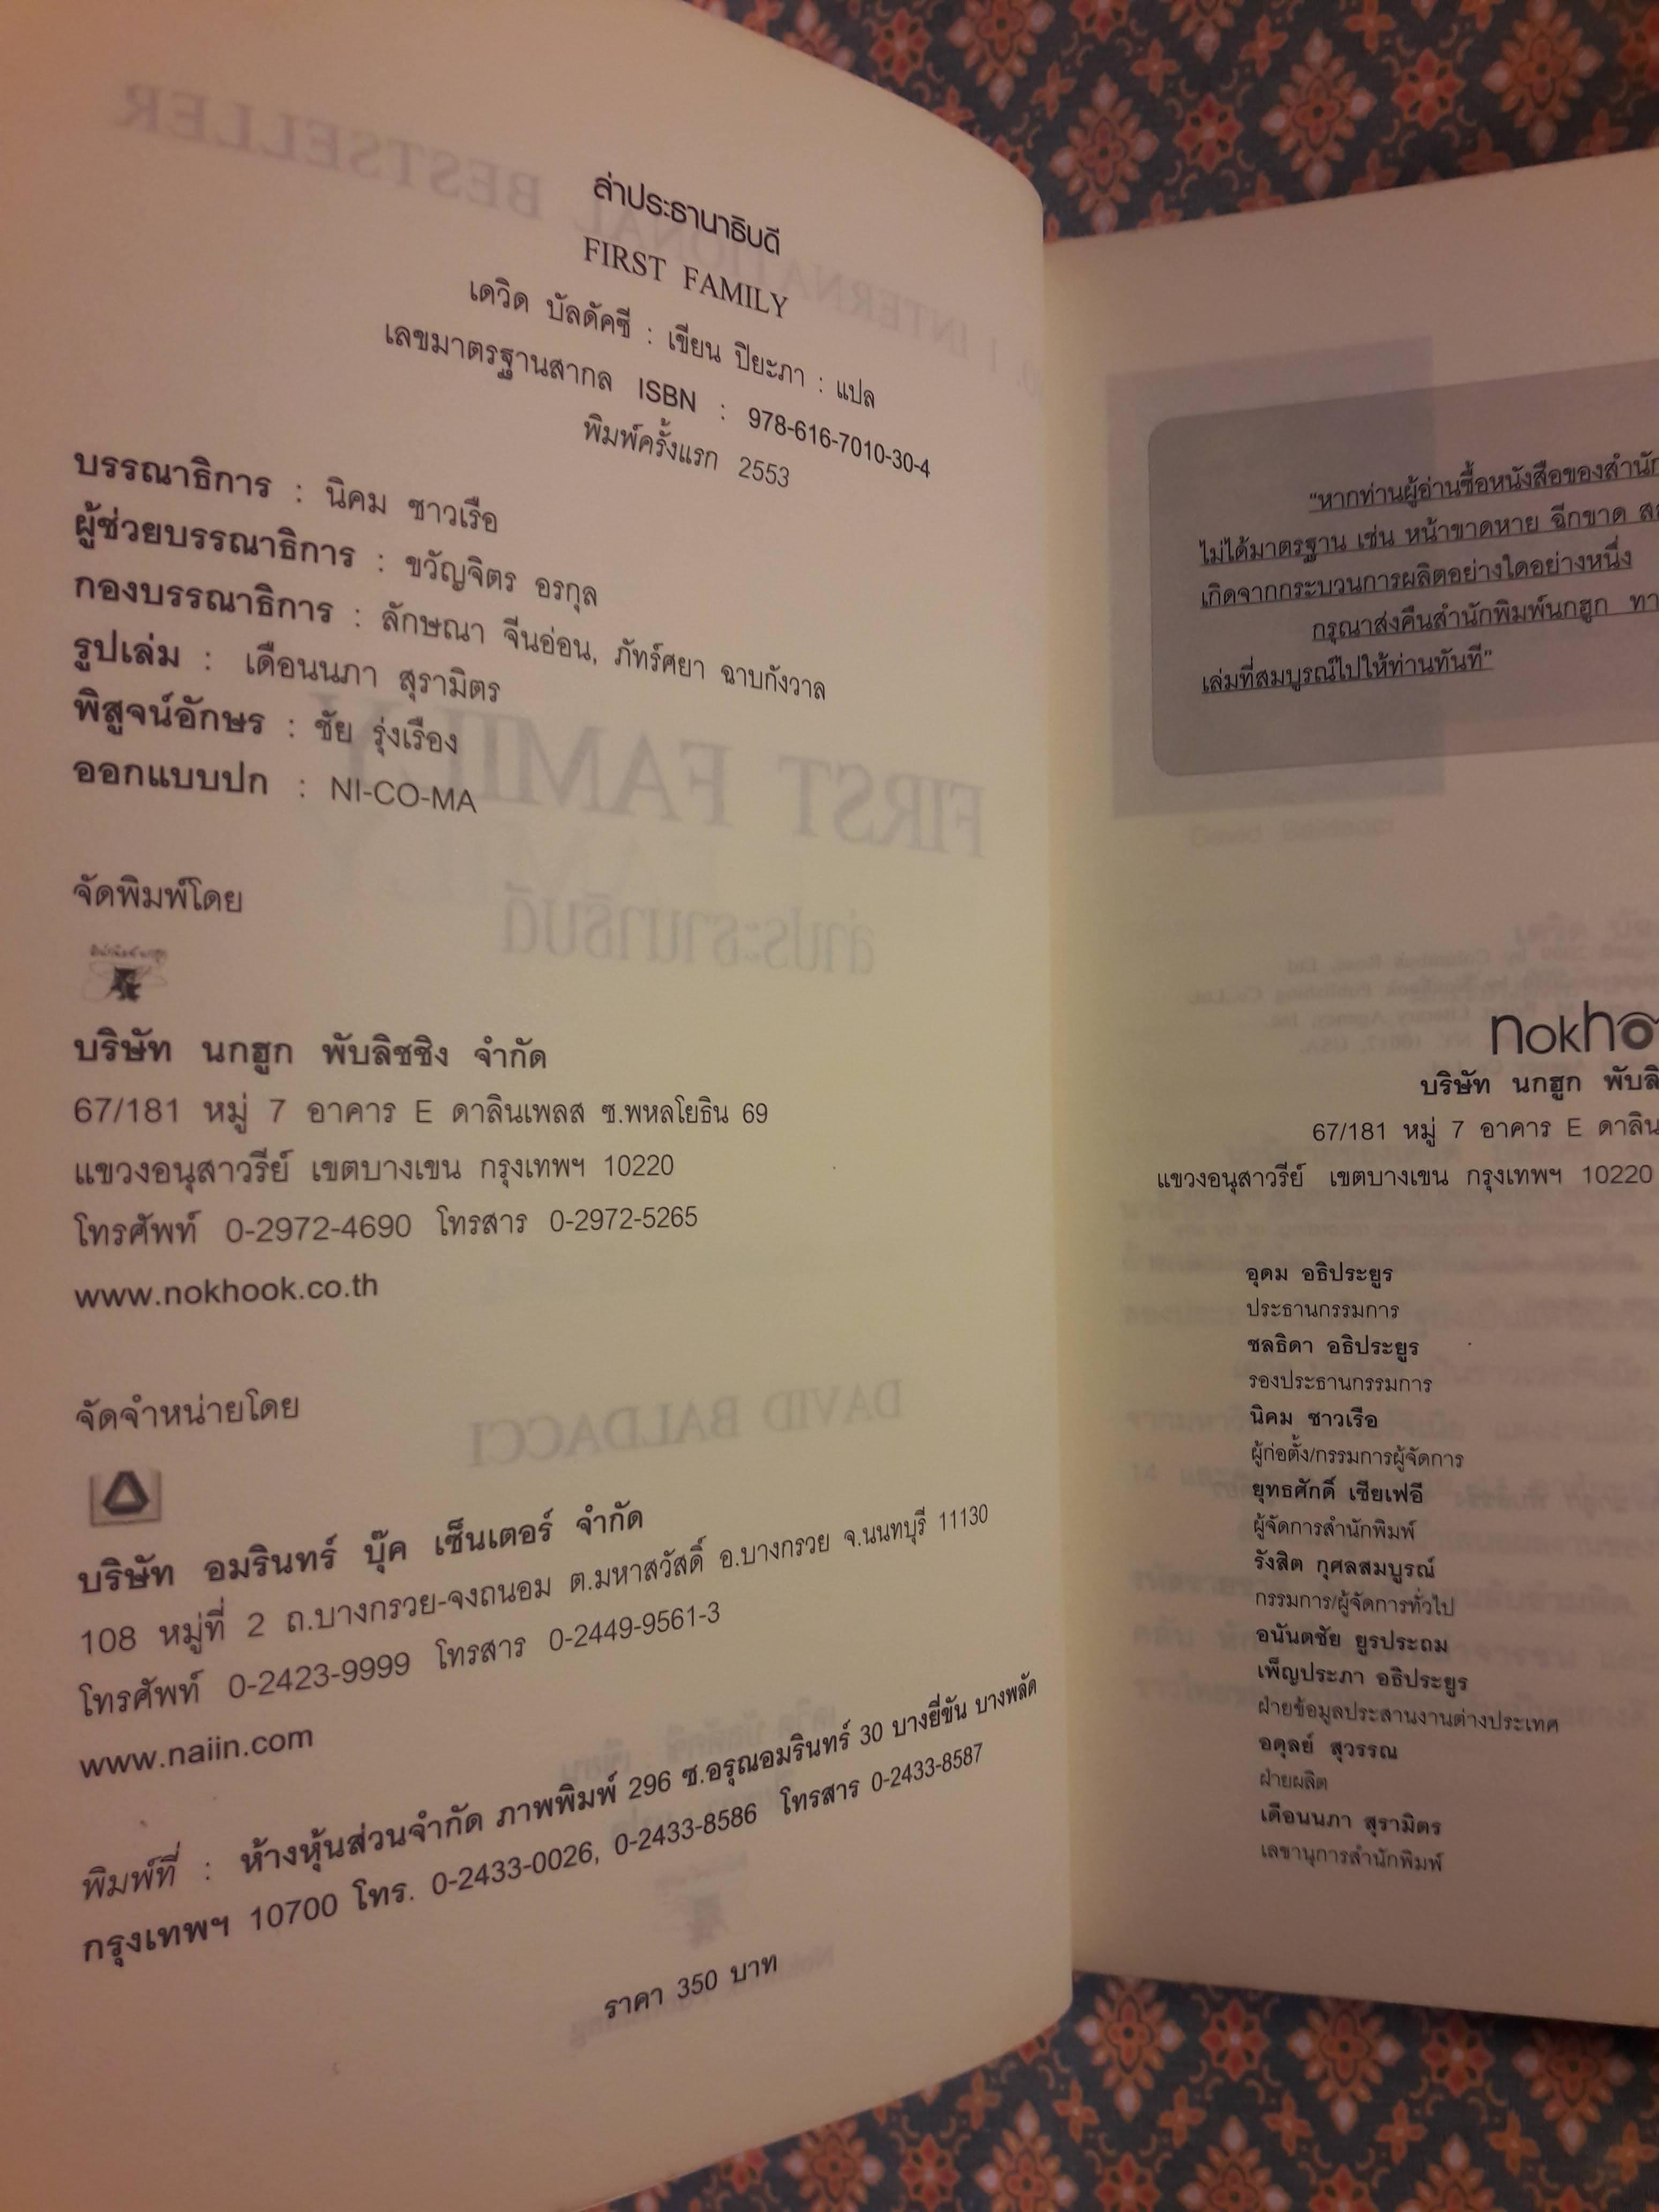 ล่าประธานาธิบดี
FIRST FAMILY
เดวิด บัลดัคซี : เขียน ปิยะภา : แปล
เลขมาตรฐานสากล ISBN : 978-616-7010-30-4
พิมพ์ครั้งแรก 2553
บรรณาธิการ : นิคม ชาวเรือ
ผู้ช่วยบรรณาธิการ : ขวัญจิตร อรกุล
กองบรรณาธิการ : ลักษณา จีนอ่อน, ภัทร์ศยา ฉาบกังวาล
รูปเล่ม : เดือนนภา สุรามิตร
พิสูจน์อักษร : ชัย รุ่งเรือง
ออกแบบปก : NI-CO-MA
จัดพิมพ์โดย
บริษัท นกฮูก พับลิชชิง จำกัด
67/181 หมู่ 7 อาคาร E ดาลินเพลส ซ.พหลโยธิน 69
แขวงอนุสาวรีย์ เขตบางเขน กรุงเทพฯ 10220
โทรศัพท์ 0-2972-4690 โทรสาร 0-2972-5265
www.nokhook.co.th
จัดจำหน่ายโดย
บริษัท อมรินทร์ บุ๊ค เซ็นเตอร์ จำกัด
108 หมู่ที่ 2 ถ.บางกรวย-จงถนอม ต.มหาสวัสดิ์ อ.บางกรวย จ.นนทบุรี 11130
โทรศัพท์ 0-2423-9999 โทรสาร 0-2449-9561-3
www.naiin.com
พิมพ์ที่ : ห้างหุ้นส่วนจำกัด ภาพพิมพ์ 296 ซ.อรุณอมรินทร์ 30 บางยี่ขัน บางพลัด
กรุงเทพฯ 10700 โทร. 0-2433-0026, 0-2433-8586 โทรสาร 0-2433-8587
ราคา 350 บาท
"หากท่านผู้อ่านซื้อหนังสือของสำนัก
ไม่ได้มาตรฐาน เช่น หน้าขาดหาย ฉีกขาด
เกิดจากกระบวนการผลิตอย่างใดอย่างหนึ่ง
กรุณาส่งคืนสำนักพิมพ์นกฮูก ทา
เล่มที่สมบูรณ์ไปให้ท่านทันที"
nokho
บริษัท นกฮูก พับลิ
67/181 หมู่ 7 อาคาร E ดาลิน
แขวงอนุสาวรีย์ เขตบางเขน กรุงเทพฯ 10220
อุดม อธิประยูร
ประธานกรรมการ
ชลธิดา อธิประยูร
รองประธานกรรมการ
นิคม ชาวเรือ
ผู้ก่อตั้ง/กรรมการผู้จัดการ
ยุทธศักดิ์ เซียเฟอี
ผู้จัดการสำนักพิมพ์
รังสิต กุศลสมบูรณ์
กรรมการ/ผู้จัดการทั่วไป
อนันตชัย ยูรประถม
เพ็ญประภา อธิประยูร
ฝ่ายข้อมูลประสานงานต่างประเทศ
อดุลย์ สุวรรณ
ฝ่ายผลิต
เดือนนภา สุรามิตร
เลขานุการสำนักพิมพ์